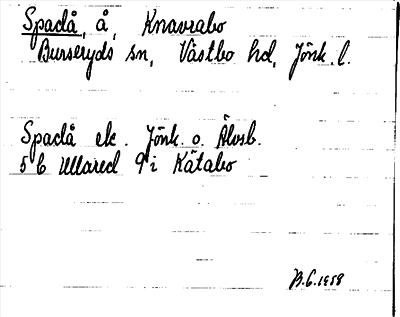 Spadå, å, Knavrabo
Burseryds sn, Västbo hd, Jönk. l.
Spadå ek. Jönk. o. Älvsb.
5 C Ullared 9 i Kätabo
B.G. 1958